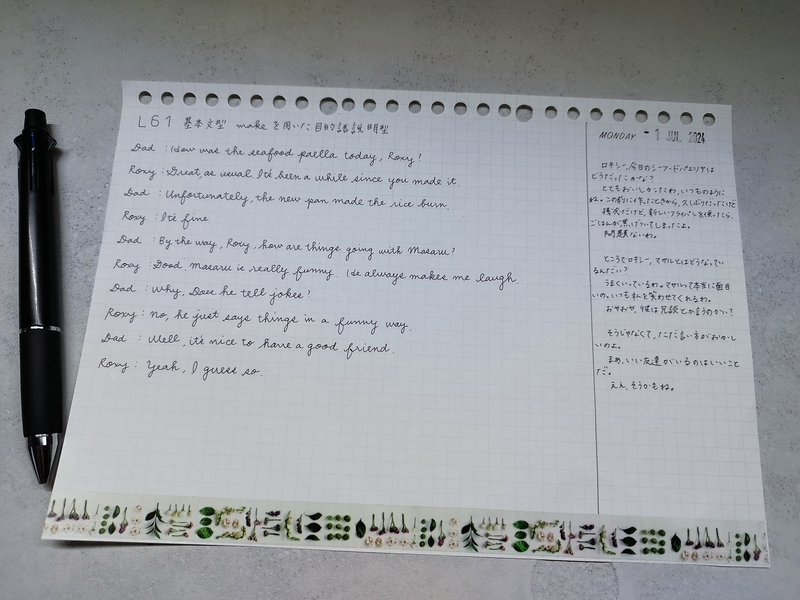 L61 基本文型 make を用いた目的語説明型
Dad : How was the seafood paella today, Roxy?
Roxy : Great, as usual. It's been a while since you made it.
Dad : Unfortunately, the new pan made the rice burn.
Roxy : It's fine.
Dad : By the way, Roxy, how are things going with Masaru?
Roxy : Good. Masaru is really funny. He always makes me laugh.
Dad : Why, Does he tell jokes?
Roxy : No, he just says things in a funny way.
Dad : Well, it's nice to have a good friend.
Roxy : Yeah, I guess so.
MONDAY - 1 JUL. 2024
ロキシー、今日のシーフードパエリアは
どうだったかな?
とてもおいしかったわ、いつものように
ね。この前に作ったときから、久しぶりだったけど
残念だけど、新しいフライパンを使ったら、
ごはんが焦げついてしまったよ。
問題ないわ。
ところでロキシー、マサルとはどうなってい
るんだい?
うまくいっているわ。マサルって本当に面白
いの。いつも私を笑わせてくれるわ。
おやおや、彼は冗談とか言うのかい?
そうじゃなくて、ただ言い方がおかし
いのよ。
まぁ、いい友達がいるのはいいこと
だ。
ええ、そうかもね。